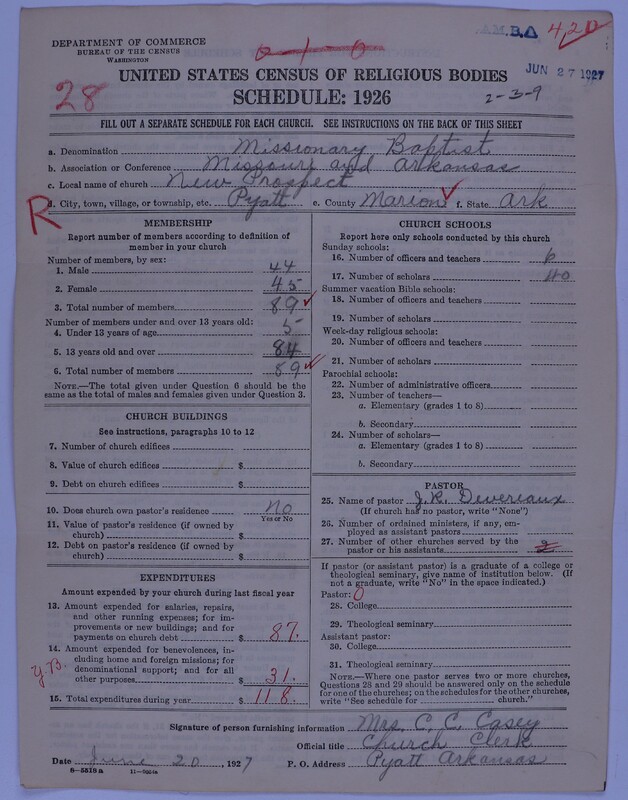 A.M.B.A 420
DEPARTMENT OF COMMERCE
BUREAU OF THE CENSUS
WASHINGTON
0-1-0
JUN 27 1927
UNITED STATES CENSUS OF RELIGIOUS BODIES
28
SCHEDULE: 1926
2-3-9
FILL OUT A SEPARATE SCHEDULE FOR EACH CHURCH. SEE INSTRUCTIONS ON THE BACK OF THIS SHEET
a. Denomination Missionary Baptist
b. Association or Conference Missouri and Arkansas
c. Local name of church New Prospect
R d. City, town, village, or township, etc. Pyatt e. County Marion f. State Ark
MEMBERSHIP
Report number of members according to definition of
member in your church
Number of members, by sex:
1. Male 44
2. Female 45
3. Total number of members 89
Number of members under and over 13 years old:
4. Under 13 years of age 5
5. 13 years old and over 84
6. Total number of members 89
NOTE.—The total given under Question 6 should be the
same as the total of males and females given under Question 3.
CHURCH BUILDINGS
See instructions, paragraphs 10 to 12
7. Number of church edifices
8. Value of church edifices $
9. Debt on church edifices $
10. Does church own pastor's residence No
Yes or No
11. Value of pastor's residence (if owned by
church) $
12. Debt on pastor's residence (if owned by
church) $
EXPENDITURES
Amount expended by your church during last fiscal year
13. Amount expended for salaries, repairs,
and other running expenses; for im-
provements or new buildings; and for
payments on church debt $ 87.
14. Amount expended for benevolences, in-
cluding home and foreign missions; for
denominational support; and for all
other purposes $ 31.
15. Total expenditures during year $ 118.
CHURCH SCHOOLS
Report here only schools conducted by this church
Sunday schools:
16. Number of officers and teachers 6
17. Number of scholars 40
Summer vacation Bible schools:
18. Number of officers and teachers
19. Number of scholars
Week-day religious schools:
20. Number of officers and teachers
21. Number of scholars
Parochial schools:
22. Number of administrative officers
23. Number of teachers—
a. Elementary (grades 1 to 8)
b. Secondary
24. Number of scholars—
a. Elementary (grades 1 to 8)
b. Secondary
PASTOR
25. Name of pastor J. R. Devereaux
(If church has no pastor, write "None")
26. Number of ordained ministers, if any, em-
ployed as assistant pastors
27. Number of other churches served by the
pastor or his assistants 2
If pastor (or assistant pastor) is a graduate of a college or
theological seminary, give name of institution below. (If
not a graduate, write "No" in the space indicated.)
Pastor: 0
28. College
29. Theological seminary
Assistant pastor:
30. College
31. Theological seminary
NOTE.—Where one pastor serves two or more churches,
Questions 28 and 29 should be answered only on the schedule
for one of the churches; on the schedules for the other churches,
write "See schedule for church."
Signature of person furnishing information Mrs. C. C. Casey
Official title Church Clerk
Date June 20, 1927 P. O. Address Pyatt Arkansas
8—5518 a